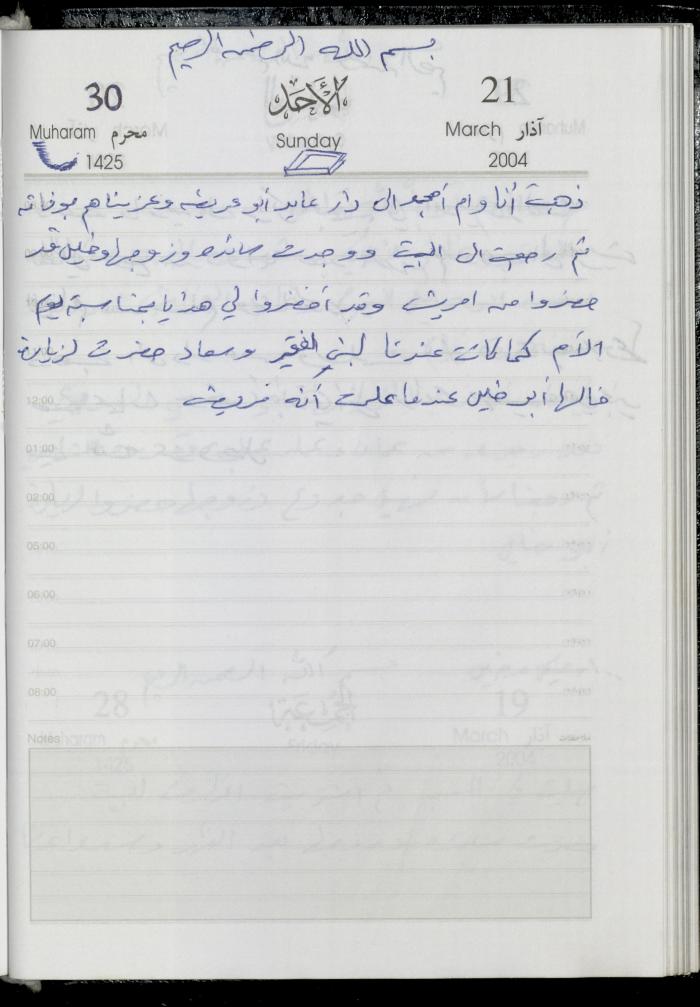 بسم الله الرحمن الرحيم
30 الأحد 21
Muharam محرم Sunday March آذار
1425 2004
ذهبت أنا وام أمجد الى دار عايد أبو عريضه وعزيناهم بوفاة
ثم رجعت الى البيت ووجدت سائده وزوجها وخليل قد
حضروا من وقد أحضروا لي هدايا بمناسبة يوم
الأم كما كانت عندنا لبنى الفقير وسعاد حضرت لزيارة
خالها أبو خليل عندما علمت أنه
12:00
01:00
02:00
05:00
06:00
07:00
08:00
Notes